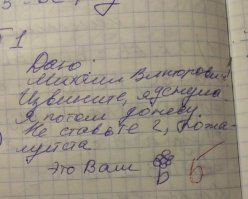 1
Дано:
Михаил Викторович!
Извините, я думала
Я потом донесу
Не ставьте 2, пожа-
луйста
Это Вам